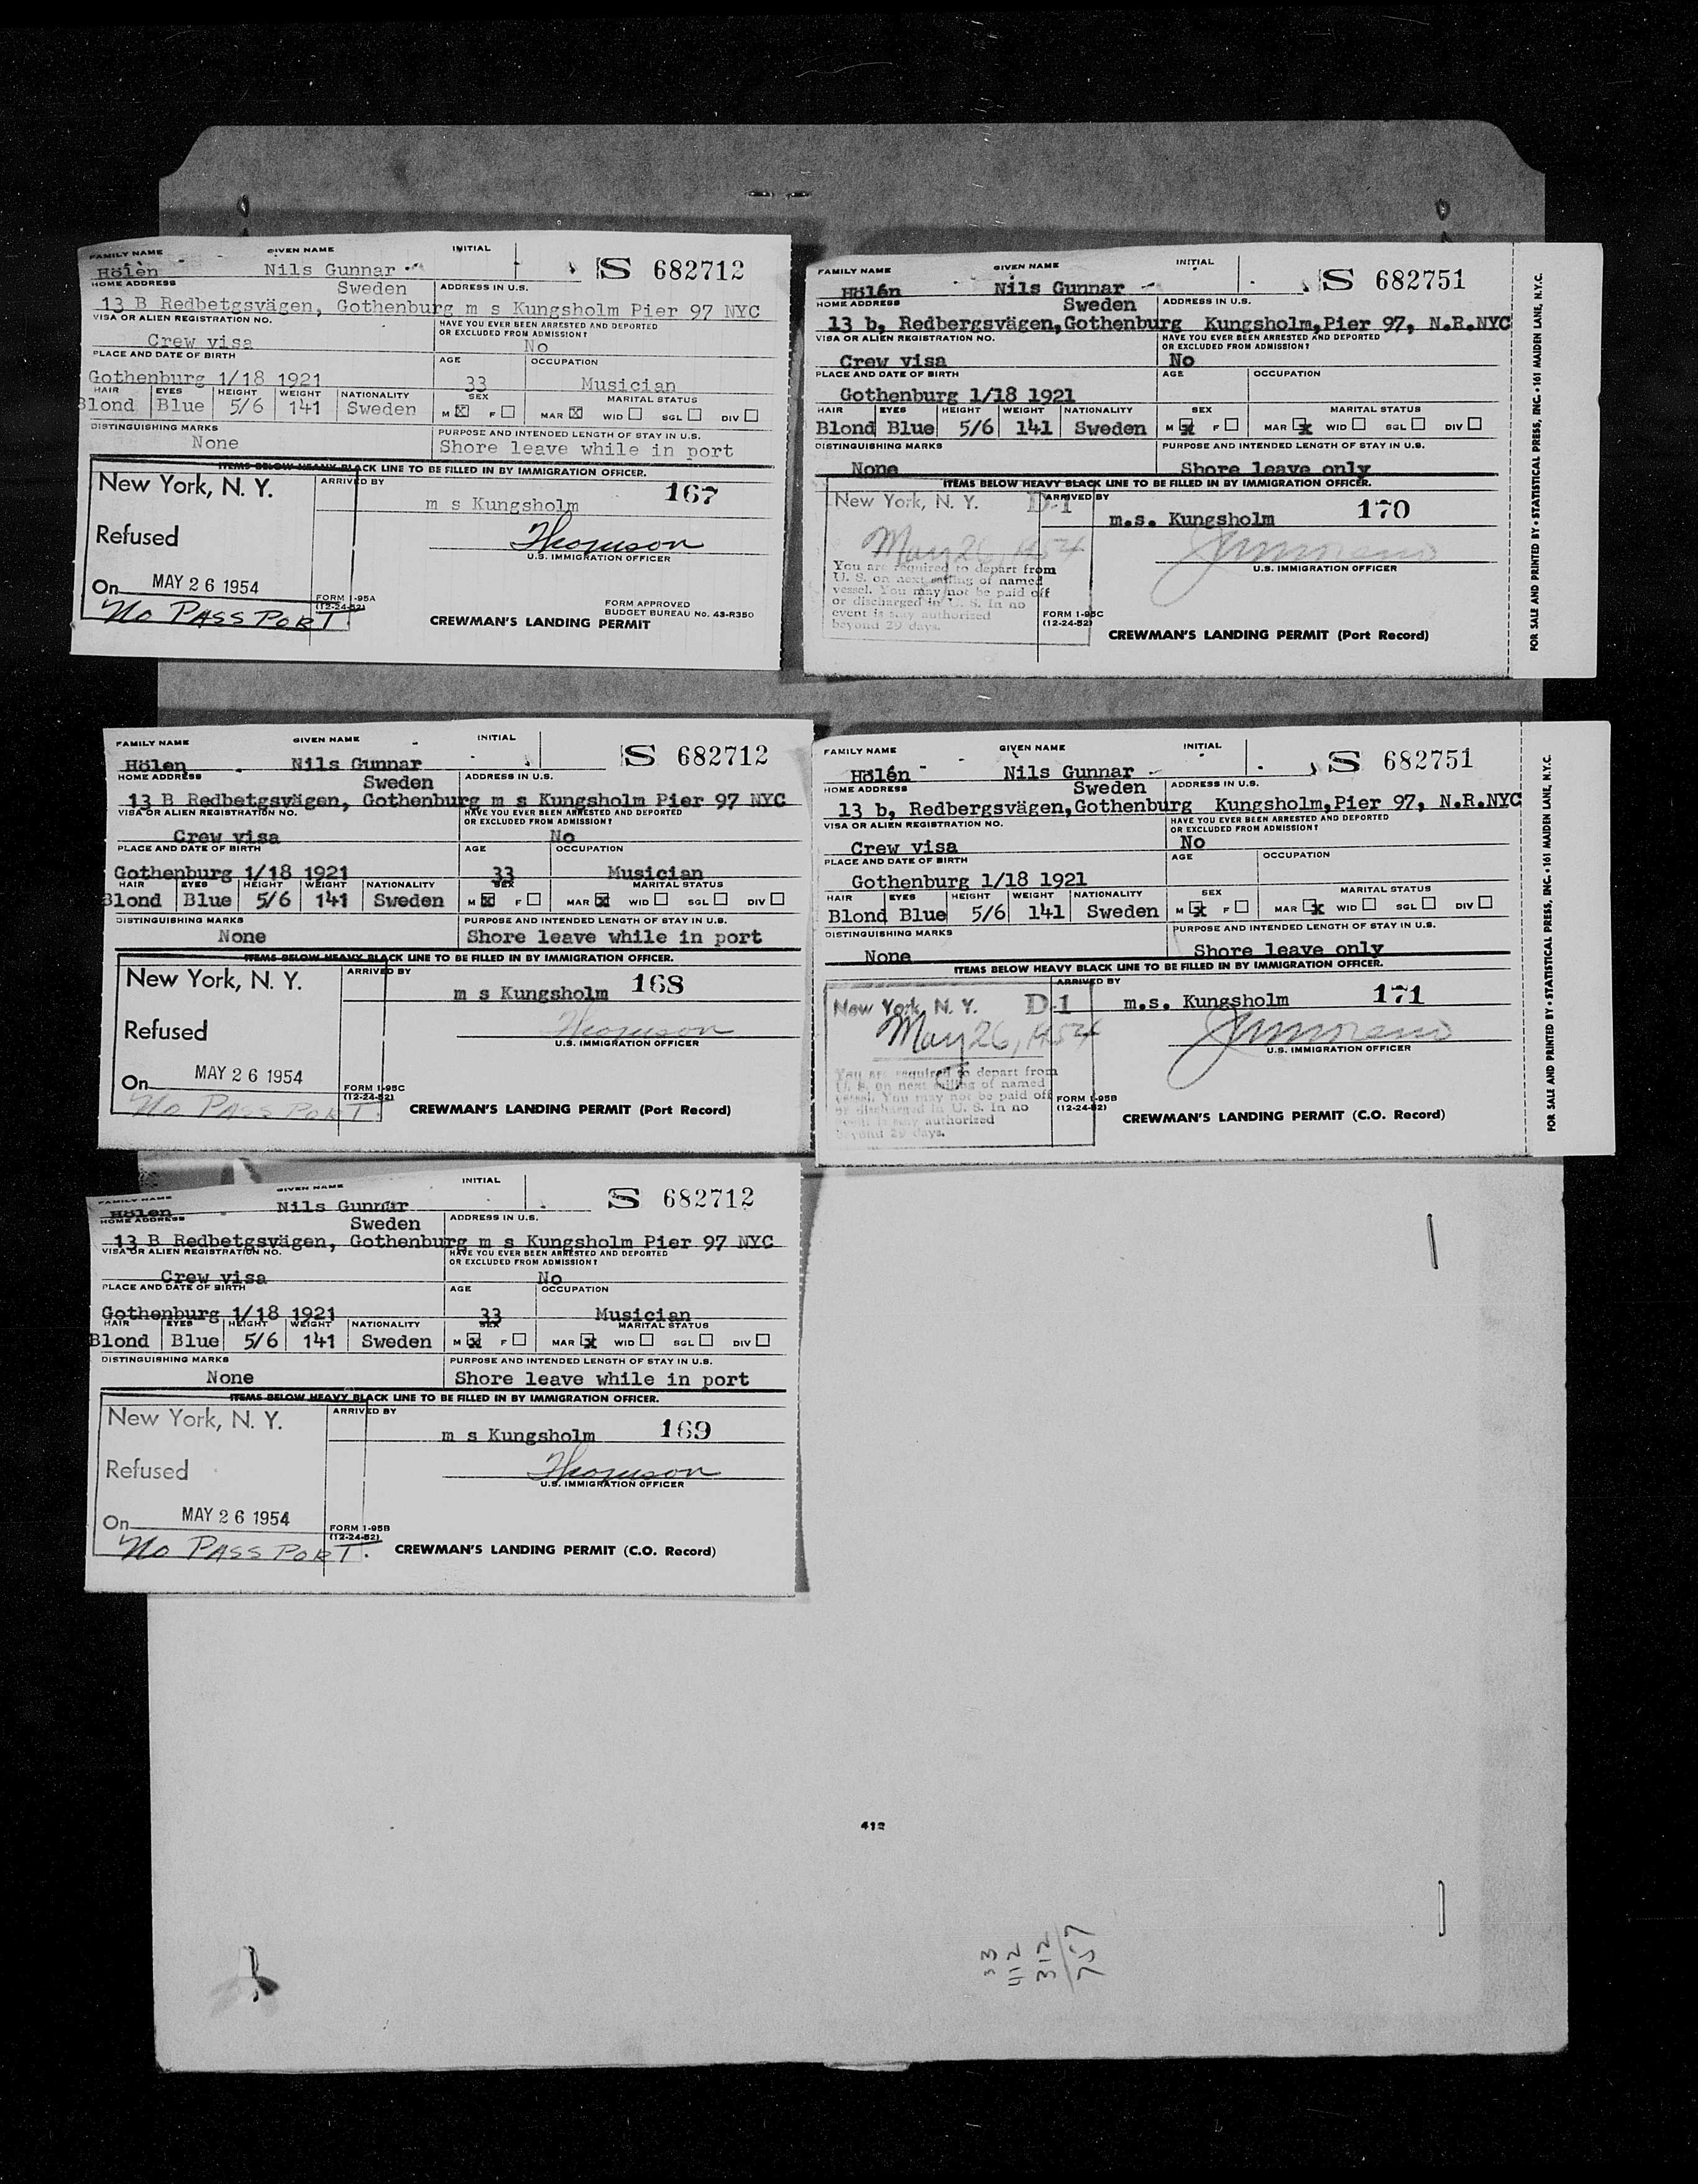 FAMILY NAME GIVEN NAME INITIAL
Hölén Nils Gunnar S 682712
HOME ADDRESS Sweden ADDRESS IN U.S.
13 B Redbetgsvägen, Gothenburg m s Kungsholm Pier 97 NYC
VISA OR ALIEN REGISTRATION NO. HAVE YOU EVER BEEN ARRESTED AND DEPORTED
OR EXCLUDED FROM ADMISSION?
Crew visa No
PLACE AND DATE OF BIRTH AGE OCCUPATION
Gothenburg 1/18 1921 33 Musician
HAIR EYES HEIGHT WEIGHT NATIONALITY SEX MARITAL STATUS
Blond Blue 5/6 141 Sweden M X F MAR X WID SGL DIV
DISTINGUISHING MARKS PURPOSE AND INTENDED LENGTH OF STAY IN U.S.
None Shore leave while in port
ITEMS BELOW HEAVY BLACK LINE TO BE FILLED IN BY IMMIGRATION OFFICER.
New York, N. Y. ARRIVED BY 167
m s Kungsholm
Refused Thomson
U.S. IMMIGRATION OFFICER
On MAY 26 1954
FORM I-95A
(12-24-52)
FORM APPROVED
BUDGET BUREAU No. 43-R350
No PASSPORT CREWMAN'S LANDING PERMIT
FAMILY NAME GIVEN NAME INITIAL
Hölén Nils Gunnar S 682751
HOME ADDRESS Sweden ADDRESS IN U.S.
13 b, Redbergsvägen,Gothenburg Kungsholm,Pier 97, N.R.NYC
VISA OR ALIEN REGISTRATION NO. HAVE YOU EVER BEEN ARRESTED AND DEPORTED
OR EXCLUDED FROM ADMISSION?
Crew visa No
PLACE AND DATE OF BIRTH AGE OCCUPATION
Gothenburg 1/18 1921
HAIR EYES HEIGHT WEIGHT NATIONALITY SEX MARITAL STATUS
Blond Blue 5/6 141 Sweden M X F MAR X WID SGL DIV
DISTINGUISHING MARKS PURPOSE AND INTENDED LENGTH OF STAY IN U.S.
None Shore leave only
ITEMS BELOW HEAVY BLACK LINE TO BE FILLED IN BY IMMIGRATION OFFICER.
New York, N. Y. D-1 ARRIVED BY 170
m.s. Kungsholm
May 26, 1954
U.S. IMMIGRATION OFFICER
You are required to depart from
U. S. on next sailing of named
vessel. You may not be paid off
or discharged in U. S. In no
event is stay authorized
beyond 29 days.
FORM I-95C
(12-24-52)
CREWMAN'S LANDING PERMIT (Port Record)
FOR SALE AND PRINTED BY • STATISTICAL PRESS, INC. • 161 MAIDEN LANE, N.Y.C.
FAMILY NAME GIVEN NAME INITIAL
Hölen Nils Gunnar S 682712
HOME ADDRESS Sweden ADDRESS IN U.S.
13 B Redbetgsvägen, Gothenburg m s Kungsholm Pier 97 NYC
VISA OR ALIEN REGISTRATION NO. HAVE YOU EVER BEEN ARRESTED AND DEPORTED
OR EXCLUDED FROM ADMISSION?
Crew visa No
PLACE AND DATE OF BIRTH AGE OCCUPATION
Gothenburg 1/18 1921 33 Musician
HAIR EYES HEIGHT WEIGHT NATIONALITY SEX MARITAL STATUS
Blond Blue 5/6 141 Sweden M X F MAR X WID SGL DIV
DISTINGUISHING MARKS PURPOSE AND INTENDED LENGTH OF STAY IN U.S.
None Shore leave while in port
ITEMS BELOW HEAVY BLACK LINE TO BE FILLED IN BY IMMIGRATION OFFICER.
New York, N. Y. ARRIVED BY 168
m s Kungsholm
Refused Thomson
U.S. IMMIGRATION OFFICER
On MAY 26 1954
FORM I-95C
(12-24-52)
No PASSPORT. CREWMAN'S LANDING PERMIT (Port Record)
FAMILY NAME GIVEN NAME INITIAL
Hölén Nils Gunnar S 682751
HOME ADDRESS Sweden ADDRESS IN U.S.
13 b, Redbergsvägen,Gothenburg Kungsholm,Pier 97, N.R.NYC
VISA OR ALIEN REGISTRATION NO. HAVE YOU EVER BEEN ARRESTED AND DEPORTED
OR EXCLUDED FROM ADMISSION?
Crew visa No
PLACE AND DATE OF BIRTH AGE OCCUPATION
Gothenburg 1/18 1921
HAIR EYES HEIGHT WEIGHT NATIONALITY SEX MARITAL STATUS
Blond Blue 5/6 141 Sweden M X F MAR X WID SGL DIV
DISTINGUISHING MARKS PURPOSE AND INTENDED LENGTH OF STAY IN U.S.
None Shore leave only
ITEMS BELOW HEAVY BLACK LINE TO BE FILLED IN BY IMMIGRATION OFFICER.
New York, N. Y. D-1 ARRIVED BY 171
m.s. Kungsholm
May 26, 1954
U.S. IMMIGRATION OFFICER
You are required to depart from
U. S. on next sailing of named
vessel. You may not be paid off
or discharged in U. S. In no
event is stay authorized
beyond 29 days.
FORM I-95B
(12-24-52)
CREWMAN'S LANDING PERMIT (C.O. Record)
FOR SALE AND PRINTED BY • STATISTICAL PRESS, INC. • 161 MAIDEN LANE, N.Y.C.
FAMILY NAME GIVEN NAME INITIAL
Hölen Nils Gunnar S 682712
HOME ADDRESS Sweden ADDRESS IN U.S.
13 B Redbetgsvägen, Gothenburg m s Kungsholm Pier 97 NYC
VISA OR ALIEN REGISTRATION NO. HAVE YOU EVER BEEN ARRESTED AND DEPORTED
OR EXCLUDED FROM ADMISSION?
Crew visa No
PLACE AND DATE OF BIRTH AGE OCCUPATION
Gothenburg 1/18 1921 33 Musician
HAIR EYES HEIGHT WEIGHT NATIONALITY SEX MARITAL STATUS
Blond Blue 5/6 141 Sweden M X F MAR X WID SGL DIV
DISTINGUISHING MARKS PURPOSE AND INTENDED LENGTH OF STAY IN U.S.
None Shore leave while in port
ITEMS BELOW HEAVY BLACK LINE TO BE FILLED IN BY IMMIGRATION OFFICER.
New York, N. Y. ARRIVED BY 169
m s Kungsholm
Refused Thomson
U.S. IMMIGRATION OFFICER
On MAY 26 1954
FORM I-95B
(12-24-52)
No PASSPORT. CREWMAN'S LANDING PERMIT (C.O. Record)
412
33
412
312
757